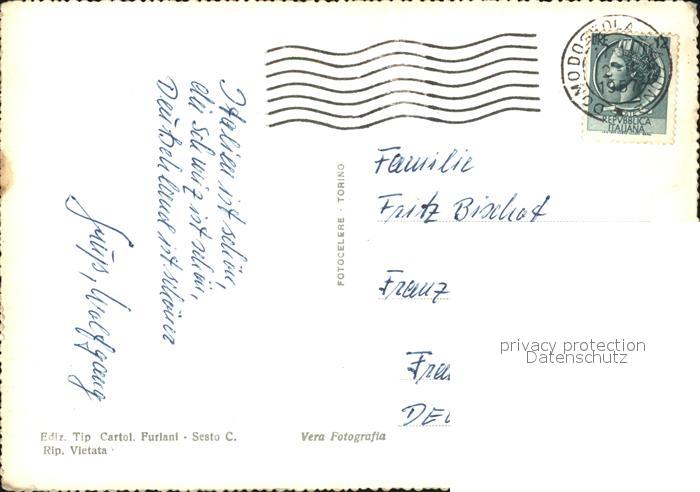 Italien ist schön,
die Schweiz ist schön,
Deutschland ist schöner
Wolfgang
FOTOCELERE - TORINO
DOMODOSSOLA
LIRE 12
REPVBBLICA
ITALIANA
Familie
Fritz Bischof
Franz
Fra
DEU
privacy protection
Datenschutz
Ediz. Tip Cartol. Furlani - Sesto C.
Rip. Vietata
Vera Fotografia